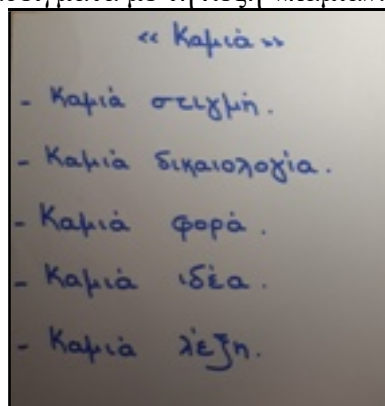 « Καμιά »
- Καμιά στιγμή.
- Καμιά δικαιολογία.
- Καμιά φορά.
- Καμιά ιδέα.
- Καμιά λέξη.